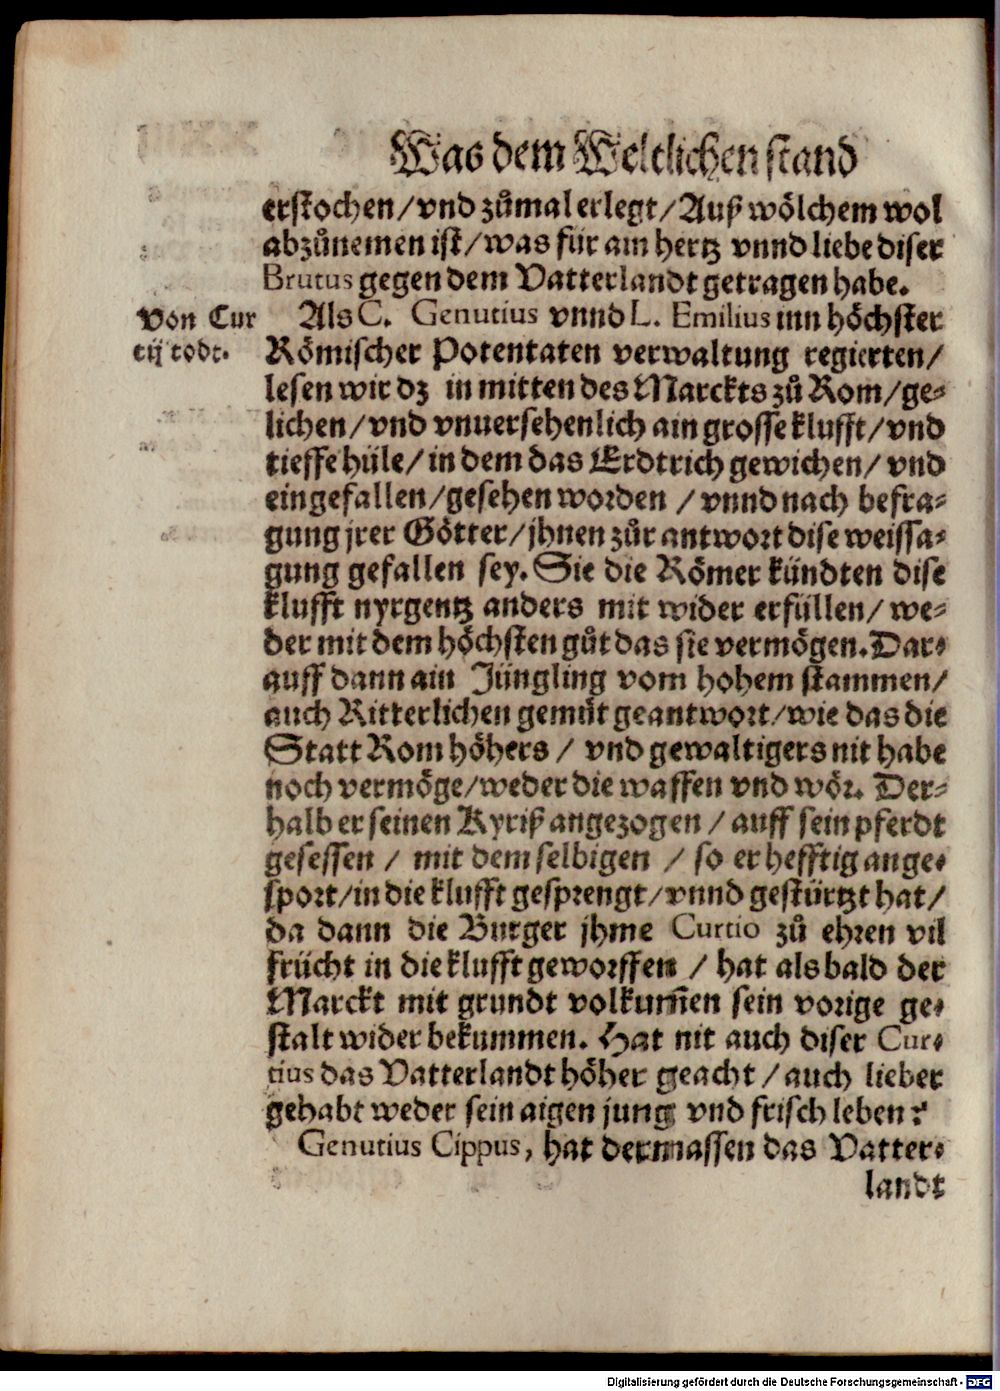 Was dem Weltlichen stand
erstochen / vnd zůmal erlegt / Auß wölchem wol
abzůnemen ist / was für ain hertz vnnd liebe diser
Brutus gegen dem Vatterlandt getragen habe.
Von Cur
tij todt.
Als C. Genutius vnnd L. Emilius inn höchster
Römischer Potentaten verwaltung regierten /
lesen wir dz in mitten des Marckts zů Rom / ge⸗
lichen / vnd vnuersehenlich ain grosse klufft / vnd
tieffe hüle / in dem das Erdtrich gewichen / vnd
eingefallen / gesehen worden / vnnd nach befra⸗
gung jrer Götter / jhnen zůr antwort dise weissa⸗
gung gefallen sey. Sie die Römer kündten dise
klufft nyrgentz anders mit wider erfüllen / we⸗
der mit dem höchsten gůt das sie vermögen. Dar⸗
auff dann ain Jüngling vom hohem stammen /
auch Ritterlichen gemüt geantwort / wie das die
Statt Rom höhers / vnd gewaltigers nit habe
noch vermöge / weder die waffen vnd wör. Der⸗
halb er seinen Kyriß angezogen / auff sein pferdt
gesessen / mit dem selbigen / so er hefftig ange⸗
sport / in die klufft gesprengt / vnnd gestürtzt hat /
da dann die Burger jhme Curtio zů ehren vil
frücht in die klufft geworffen / hat als bald der
Marckt mit grundt volkum̃en sein vorige ge⸗
stalt wider bekummen. Hat nit auch diser Cur⸗
tius das Vatterlandt höher geacht / auch lieber
gehabt weder sein aigen jung vnd frisch leben?
Genutius Cippus, hat dermassen das Vatter⸗
landt
Digitalisierung gefördert durch die Deutsche Forschungsgemeinschaft - DFG